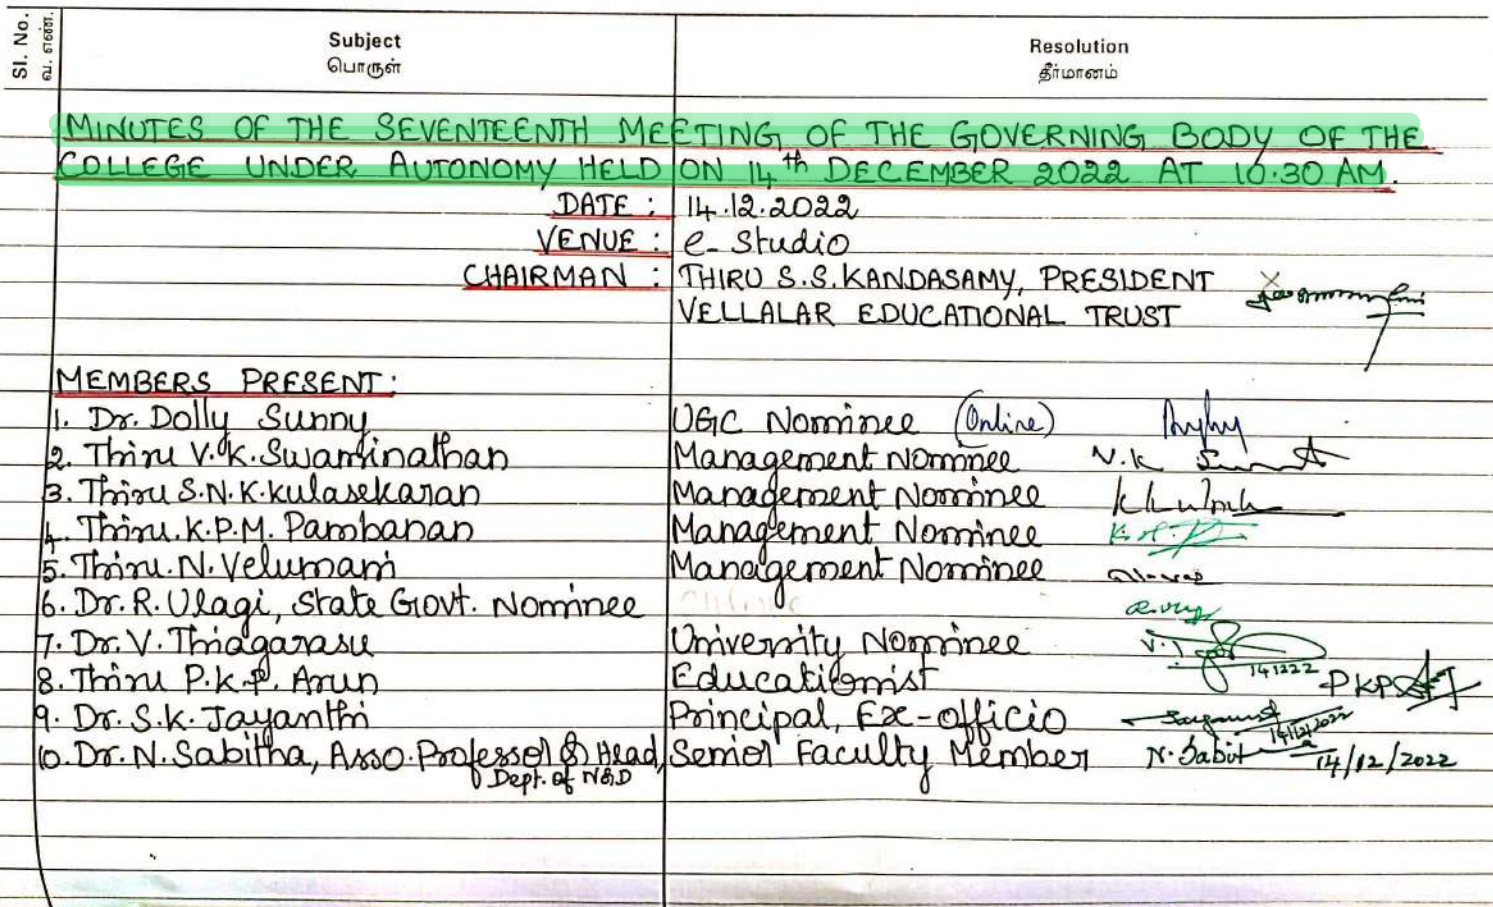 Sl. No.
வ. எண்.
Subject
பொருள்
Resolution
தீர்மானம்
MINUTES OF THE SEVENTEENTH MEETING OF THE GOVERNING BODY OF THE
COLLEGE UNDER AUTONOMY HELD ON 14th DECEMBER 2022 AT 10.30 AM.
DATE : 14.12.2022
VENUE : e-Studio
CHAIRMAN : THIRU S.S.KANDASAMY, PRESIDENT
VELLALAR EDUCATIONAL TRUST
MEMBERS PRESENT:
1. Dr. Dolly Sunny UGC Nominee (Online)
2. Thiru V.K.Swaminathan Management Nominee V.K
3. Thiru S.N.K.Kulasekaran Management Nominee
4. Thiru.K.P.M. Pambanan Management Nominee
5. Thiru.N.Velumani Management Nominee
6. Dr.R.Ulagi, State Govt. Nominee
7. Dr.V.Thiagarasu University Nominee 141222
8. Thiru P.K.P. Arun Educationist PKP
9. Dr.S.K.Jayanthi Principal, Ex-officio 14/12/2022
10. Dr.N.Sabitha, Asso.Professor & Head, Senior Faculty Member N.Sabit 14/12/2022
Dept. of N&D